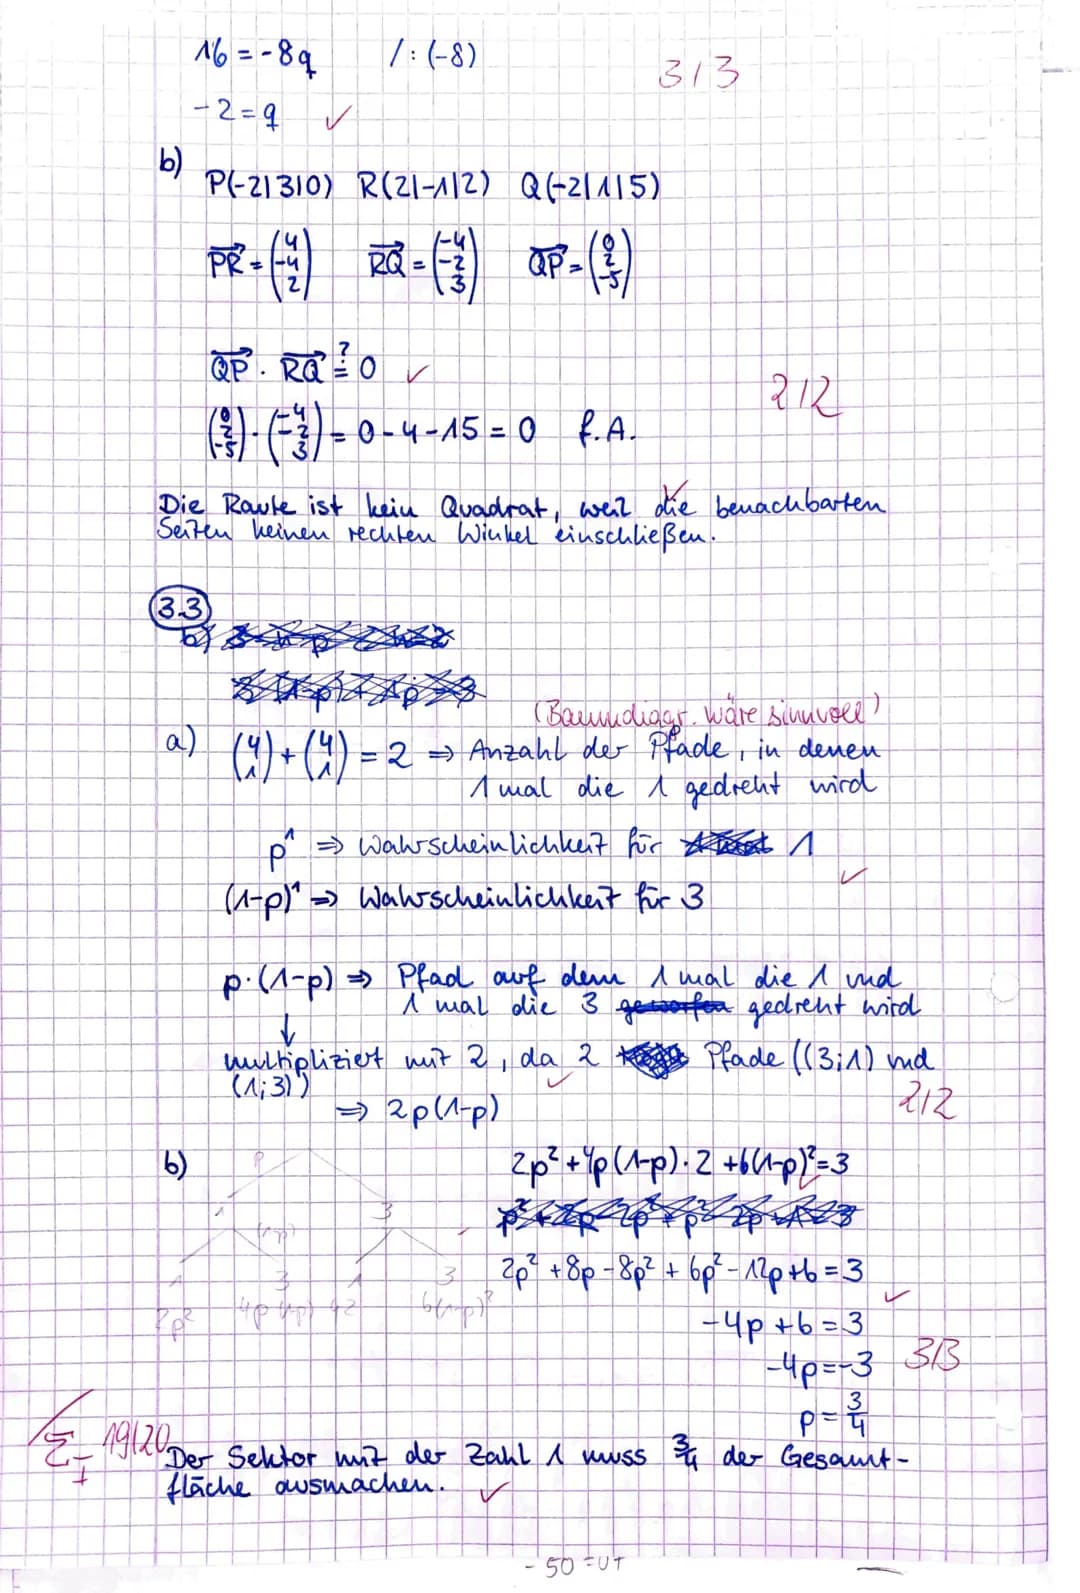 16 = -8q /:(-8)
3/3
-2 = q ✓
b)
P(-2|3|0) R(2|-1|2) Q(-2|1|5)
PR = (4 -4 2) RQ = (-4 -2 3) QP = (0 2 -5)
QP · RQ ≟ 0 ✓
2/2
(0 2 -5) · (-4 -2 3) = 0-4-15 = 0 f.A.
Die Raute ist kein Quadrat, weil die benachbarten
Seiten keinen rechten Winkel einschließen.
3.3
b)
(Baumdiagr. wäre sinnvoll)
a) (4 1) + (4 1) = 2 ⇒ Anzahl der Pfade, in denen
1 mal die 1 gedreht wird
p¹ ⇒ Wahrscheinlichkeit für 1
✓
(1-p)¹ ⇒ Wahrscheinlichkeit für 3
p·(1-p) ⇒ Pfad auf dem 1 mal die 1 und
1 mal die 3 geworfen gedreht wird
↓
multipliziert mit 2, da 2 Pfade ((3;1) und
(1;3)) ✓
2/2
⇒ 2p(1-p)
b)
p
2p² + 4p(1-p)·2 + 6(1-p)² = 3
1 3
(1-p)
2p² + 8p - 8p² + 6p² - 12p + 6 = 3
1 3 1 3
2p² 4p(1-p) ·2 6(1-p)²
✓
-4p + 6 = 3
-4p = -3
3/3
p = 3/4
Σ I 19/20
Der Sektor mit der Zahl 1 muss 3/4 der Gesamt-
fläche ausmachen. ✓